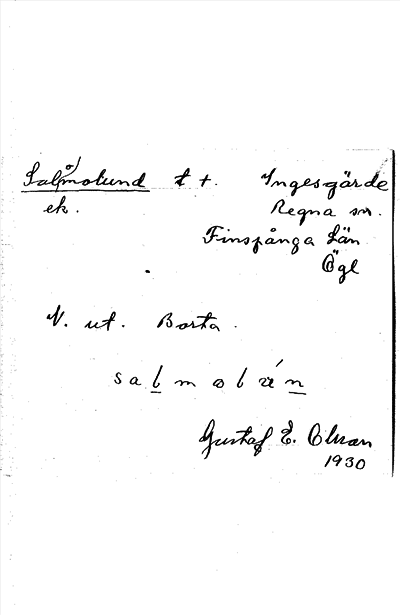 Salmolund t +. Ingesgärde
ek. Regna sn.
Finspånga Län
Ögl
N. ut. Borta.
Gustaf E. Olsson
1930